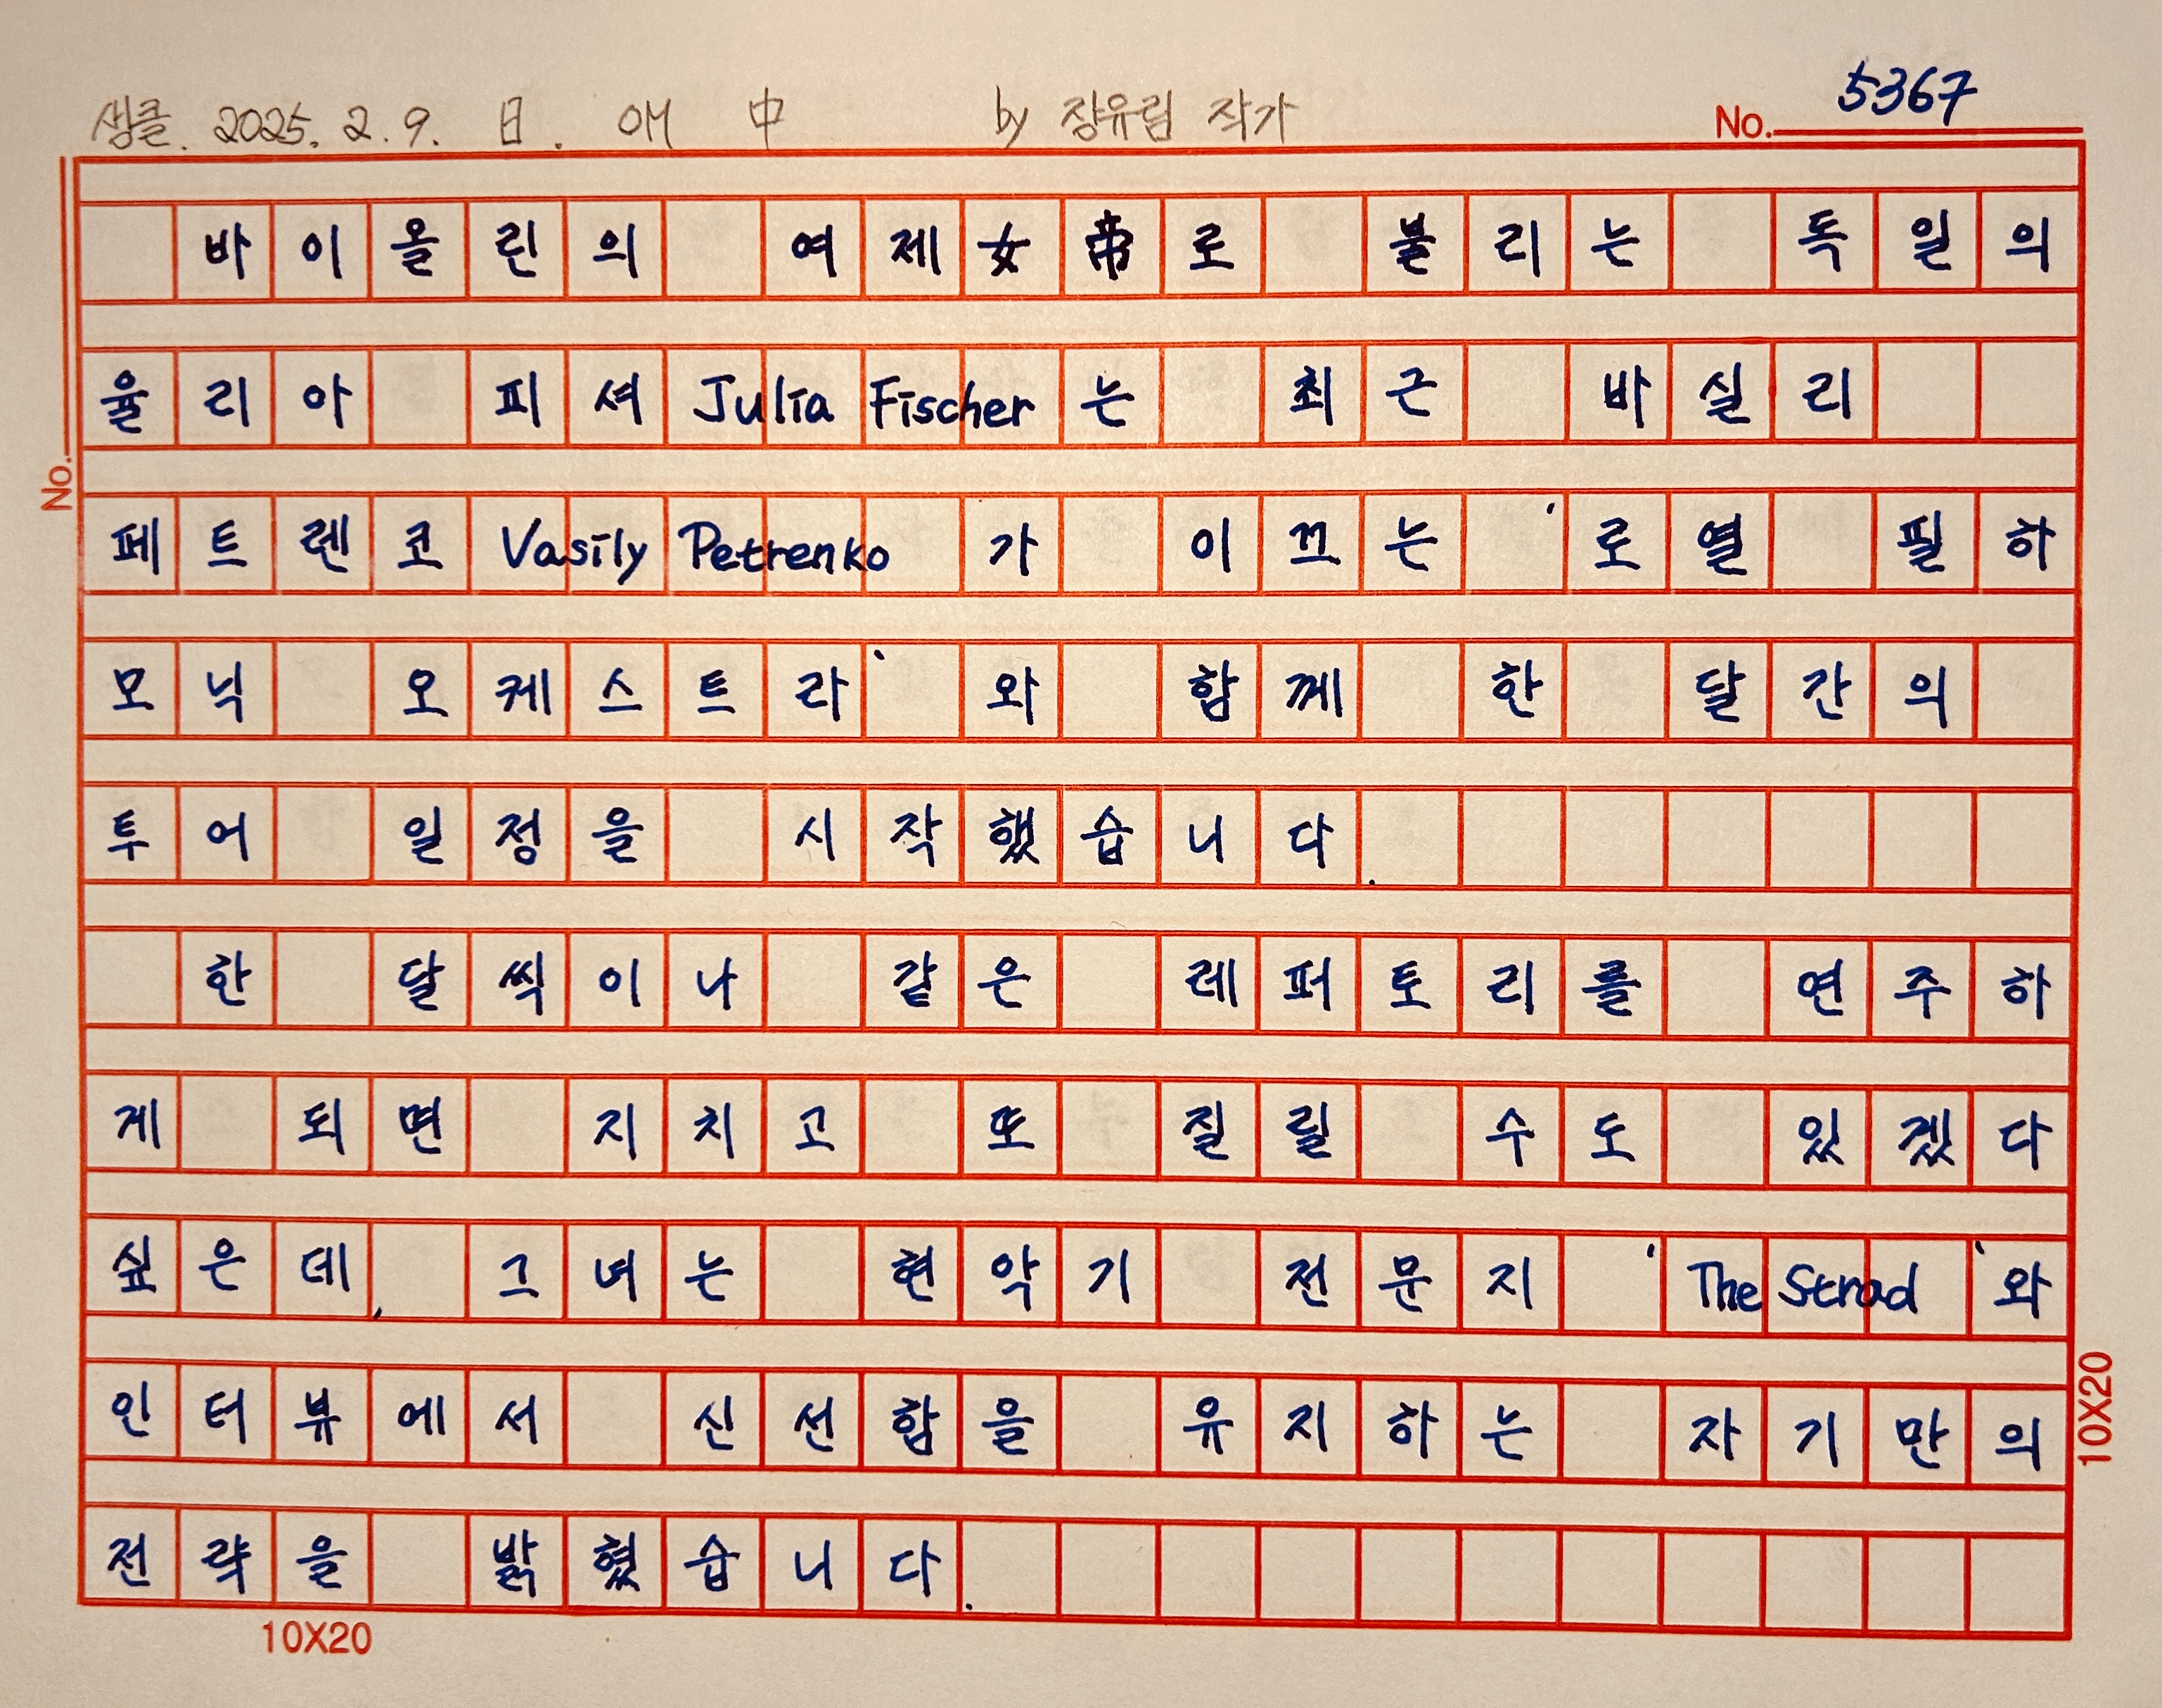 생클. 2025. 2. 9. 日. 애 中 by 장유림 작가
No. 5367
바이올린의 여제女帝로 불리는 독일의
율리아 피셔 Julia Fischer는 최근 바실리
No.
페트렌코 Vasily Petrenko가 이끄는 '로열 필하
모닉 오케스트라'와 함께 한 달간의
투어 일정을 시작했습니다.
한 달씩이나 같은 레퍼토리를 연주하
게 되면 지치고 또 질릴 수도 있겠다
싶은데, 그녀는 현악기 전문지 'The Strad'와
인터뷰에서 신선함을 유지하는 자기만의
10X20
전략을 밝혔습니다.
10X20